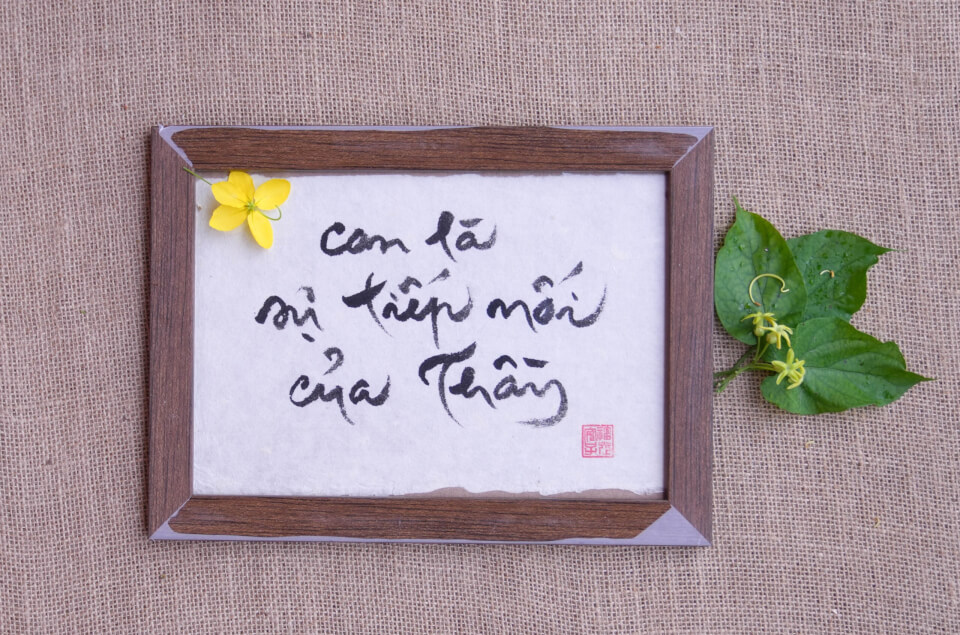 con là
sự tiếp nối
của Thầy